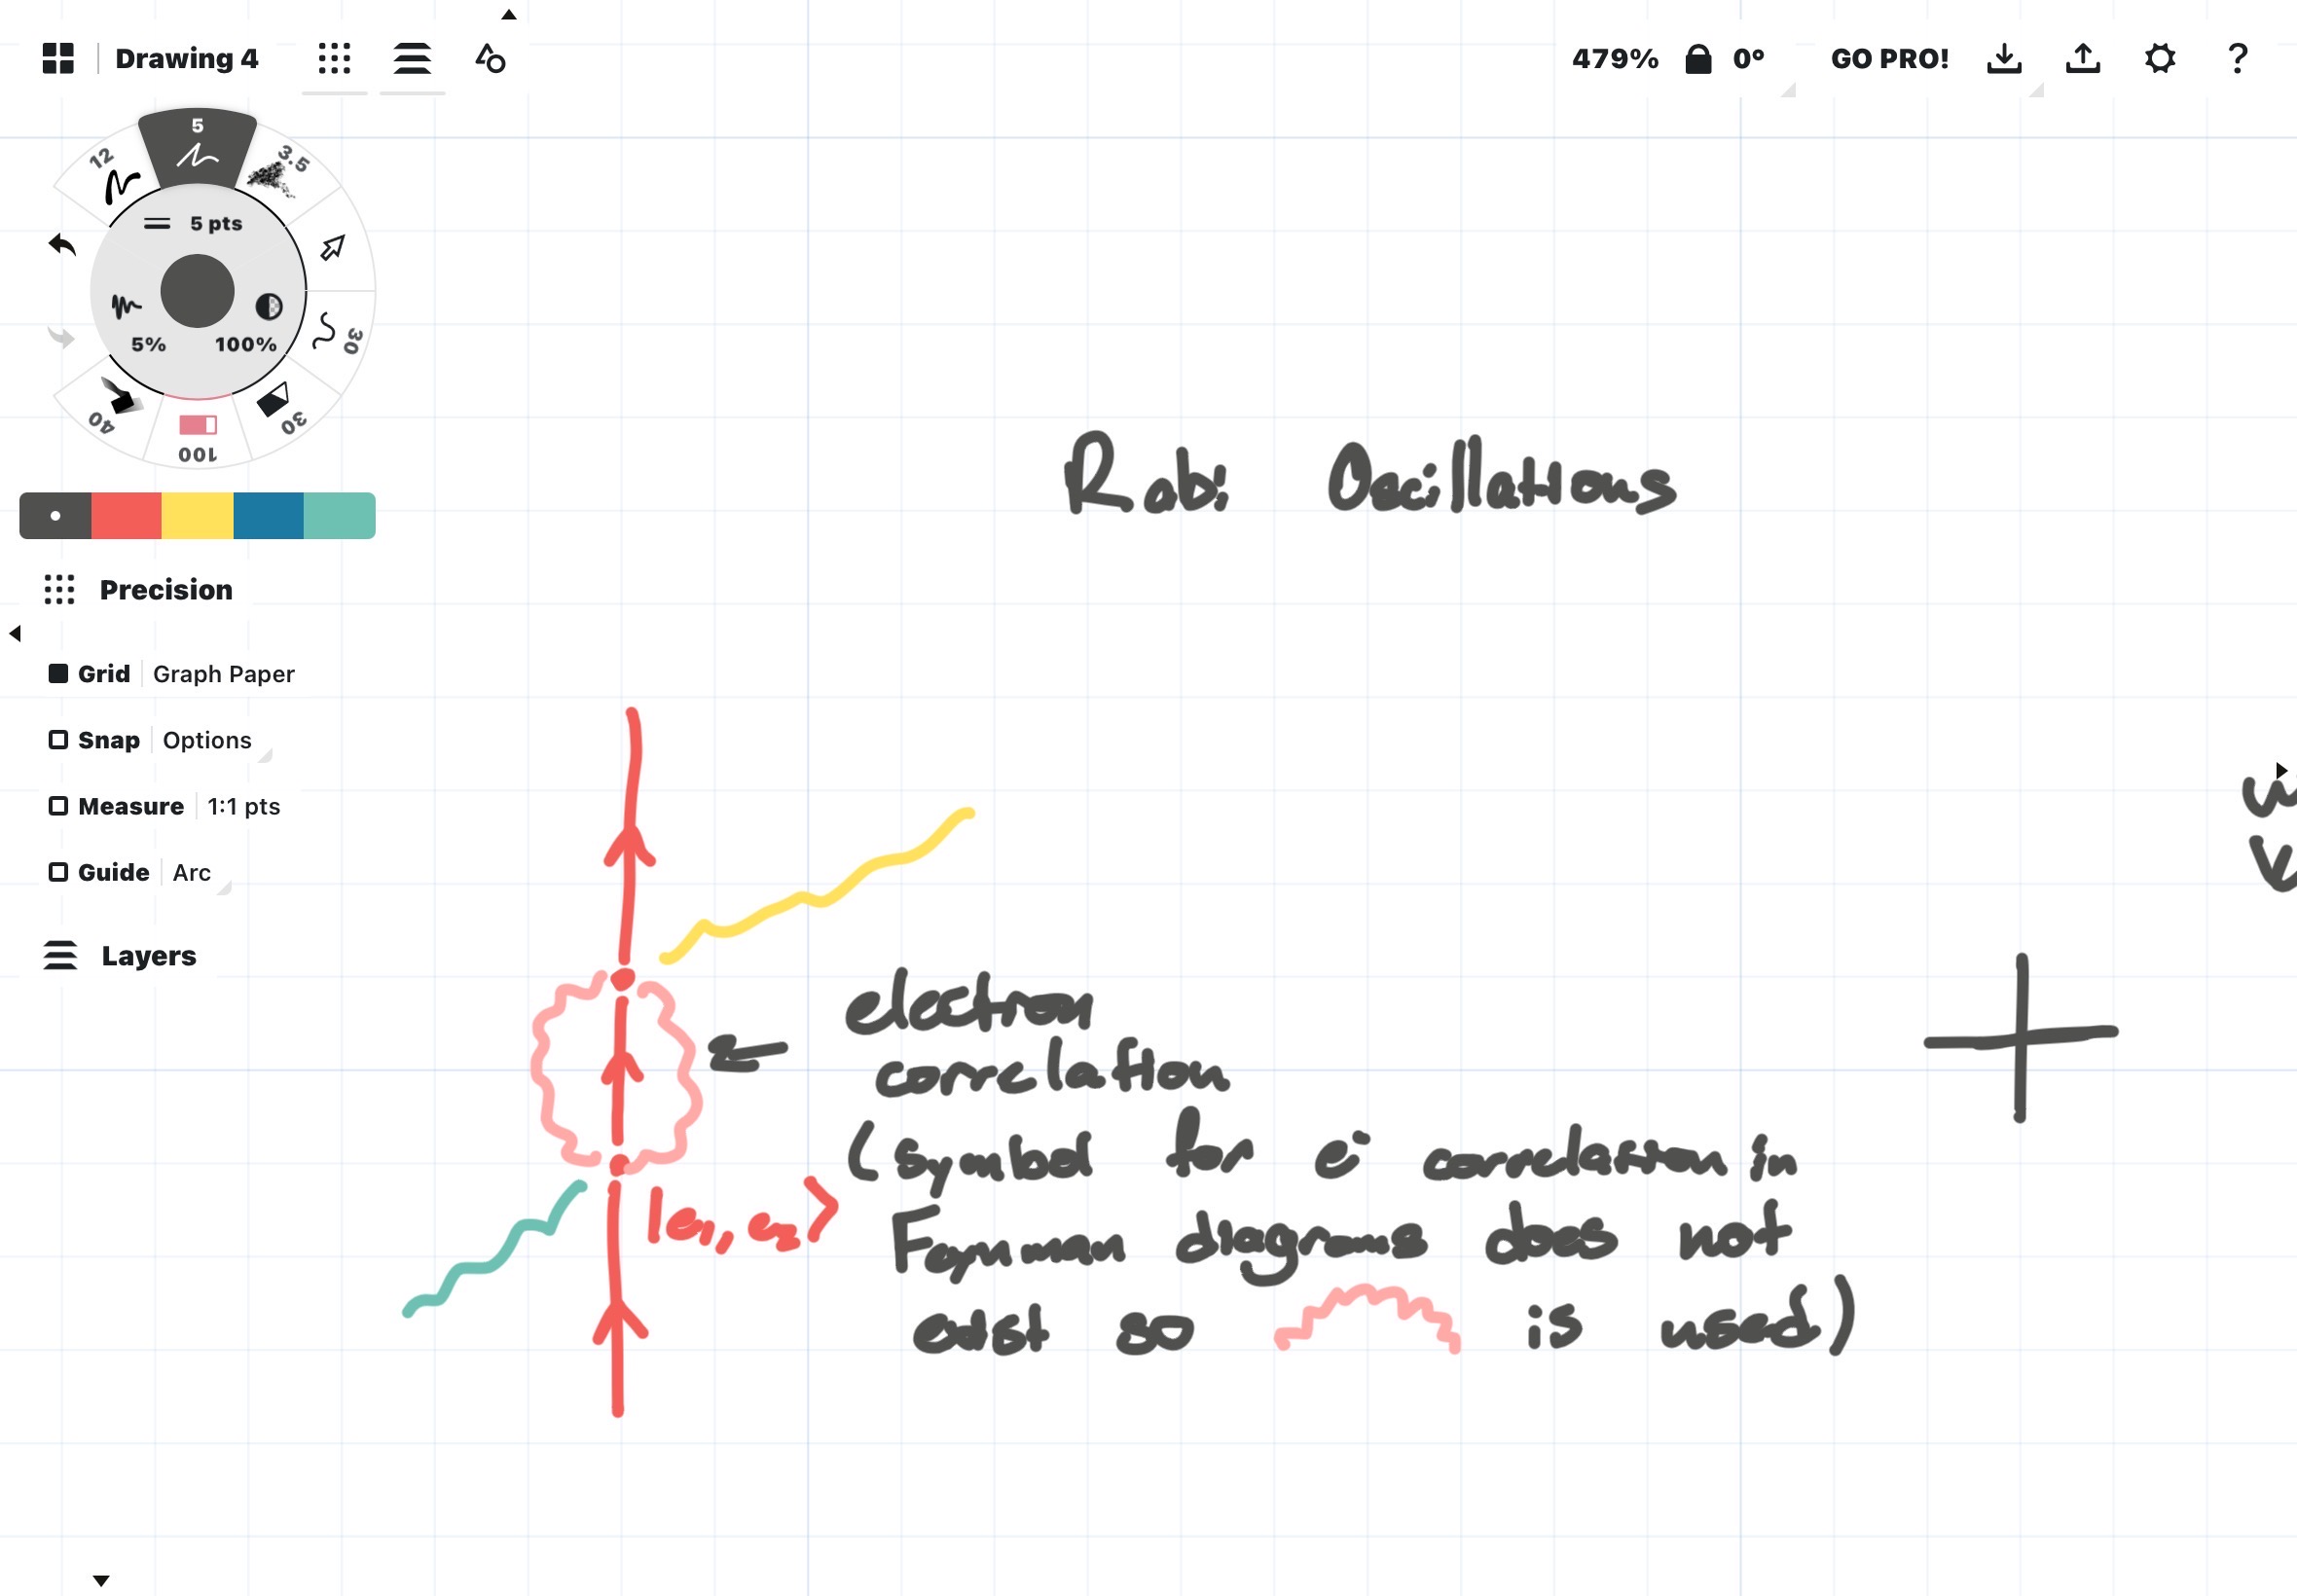 Drawing 4
479% 0° GO PRO! ?
5
12
3.5
5 pts
5%
100%
30
30
40
100
Precision
Grid Graph Paper
Snap Options
Measure 1:1 pts
Guide Arc
Layers
Rabi Oscillations
electron
correlation
(symbol for e⁻ correlation in
Feynman diagrams does not
exist so is used)
|e₁, e₂>